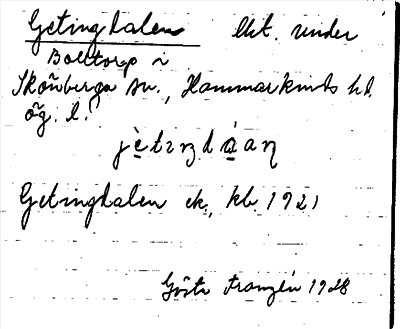 Getingdalen lht. under
Bolltorp i
Skönberga sn., Hammarkinds hd.
Ög. l.
jètıŋdàaɳ
Getingdalen ek., kb. 1921
Gösta Franzén 1928